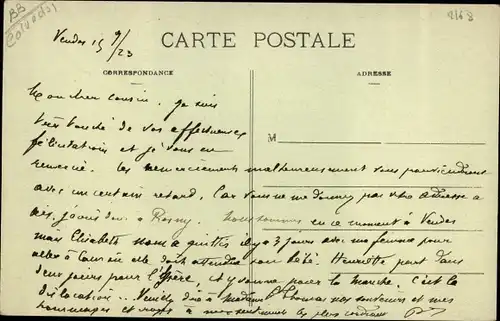 BB
Calvados
2168
Vendes 15 9/23
CARTE POSTALE
CORRESPONDANCE
ADRESSE
M
Mon cher cousin. Je suis
très touché de vos affectueuses
félicitations et je vous en
remercie. Les remerciements malheureusement vous parviendront
avec un certain retard. Car vous ne me donnez pas votre adresse
à Rosny. Nous sommes en ce moment à Vendes
mais Elisabeth nous a quittés il y a 3 jours avec ma femme pour
aller à Caen où elle doit attendre son bébé. Henriette part dans
deux jours pour et Yvonne pour la Manche. C'est la
dislocation... à madame Thomas nos souvenirs et mes
hommages et à nos sentiments les plus cordiaux